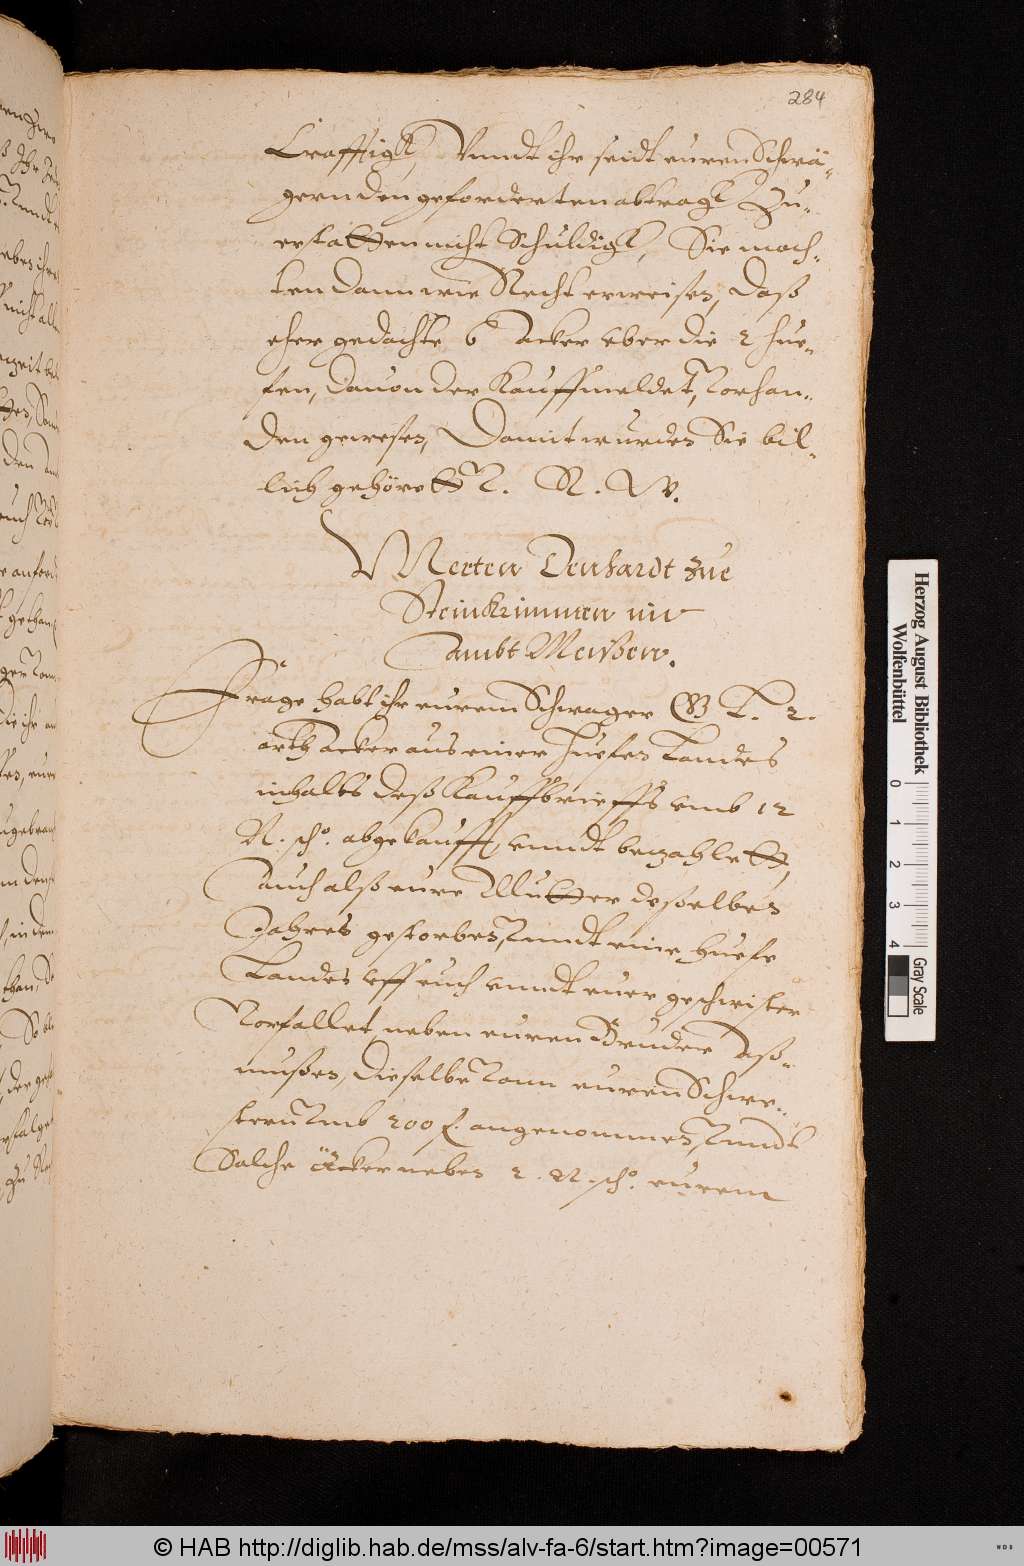 284
Crefftigk, Vnndt ihr seidt euren Schwä-
gern den geforderten abtragk Zu-
erstatten nicht Schuldigk, Sie moch-
ten dann wie Recht erweisen, Daß
eher gedachte 6 acker vber die 2 hue-
fen, dauon der Kauff meldet, Vorhan-
den gewesen, Damit wurden Sie bil-
lich gehörett V. R. W.
Merten Denhardt zue
Steinkrimmen im
Ambt Meißen.
Frage habt ihr eurem Schwager
acker aus einer huefen Landes
inhalts deß Kauffbrieffs vmb 12
N. ßo. abgekaufft, vnndt bezahlett,
auch alß eure Mutter deßelben
Jahres gestorben, Vnndt eine huefe
Landes vff euch vnndt euer geschwister
Vorfallet, neben euren Bruder Aß-
mußen, dieselbe Vonn euren Schwe-
stern Vmb 200 f. angenommen, Vnndt
Solche Äcker neben 2. N. ßo. eurem
Herzog August Bibliothek
Wolfenbüttel
0 1 2 3 4
Gray Scale
© HAB http://diglib.hab.de/mss/alv-fa-6/start.htm?image=00571
WDB